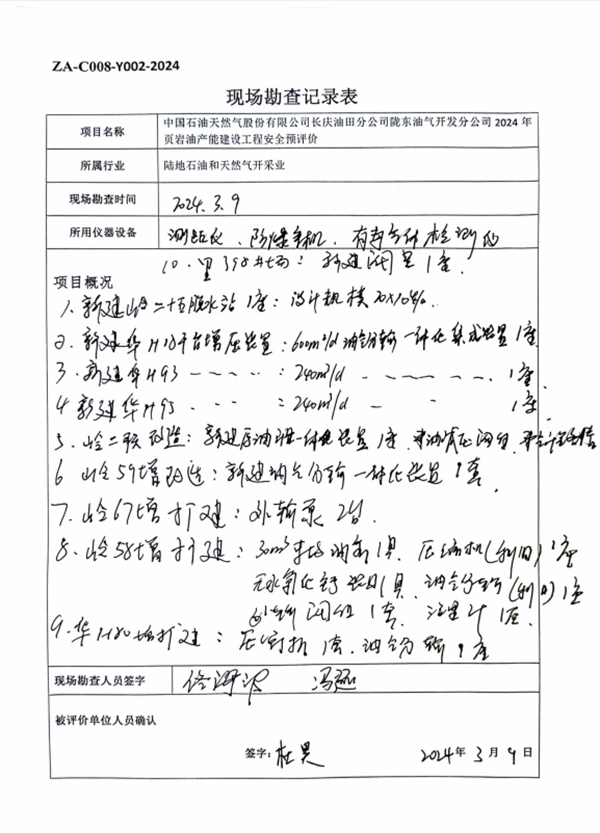 ZA-C008-Y002-2024
现场勘查记录表
项目名称
中国石油天然气股份有限公司长庆油田分公司陇东油气开发分公司 2024 年
页岩油产能建设工程安全预评价
所属行业
陆地石油和天然气开采业
现场勘查时间
2024.3.9
所用仪器设备
测距仪、防爆手机、有毒气体检测仪
项目概况
10. 里398井场：新建阀组1座.
1、新建岭二十五脱水站1座：设计规模
2、新建华H12平台增压装置：600m³/d 油气分输一体化集成装置1座
3、新建华H93 ：240m³/d 1座
4 新建华H95 ：240m³/d 1座
5、岭二联改造：新建原油一体化装置1座
6 岭59增改造：新建油气分输一体化装置1套
7、岭67增扩建：外输泵2台
8、岭58增扩建：30m³ 油箱1具、压缩机(利旧)1座
1具、油气分输(利旧)1座
阀组1套、流量计1座
9、华H80 扩建：压缩机1套、油气分输1座
现场勘查人员签字
冯
被评价单位人员确认
签字：杜昊
2024年3月9日